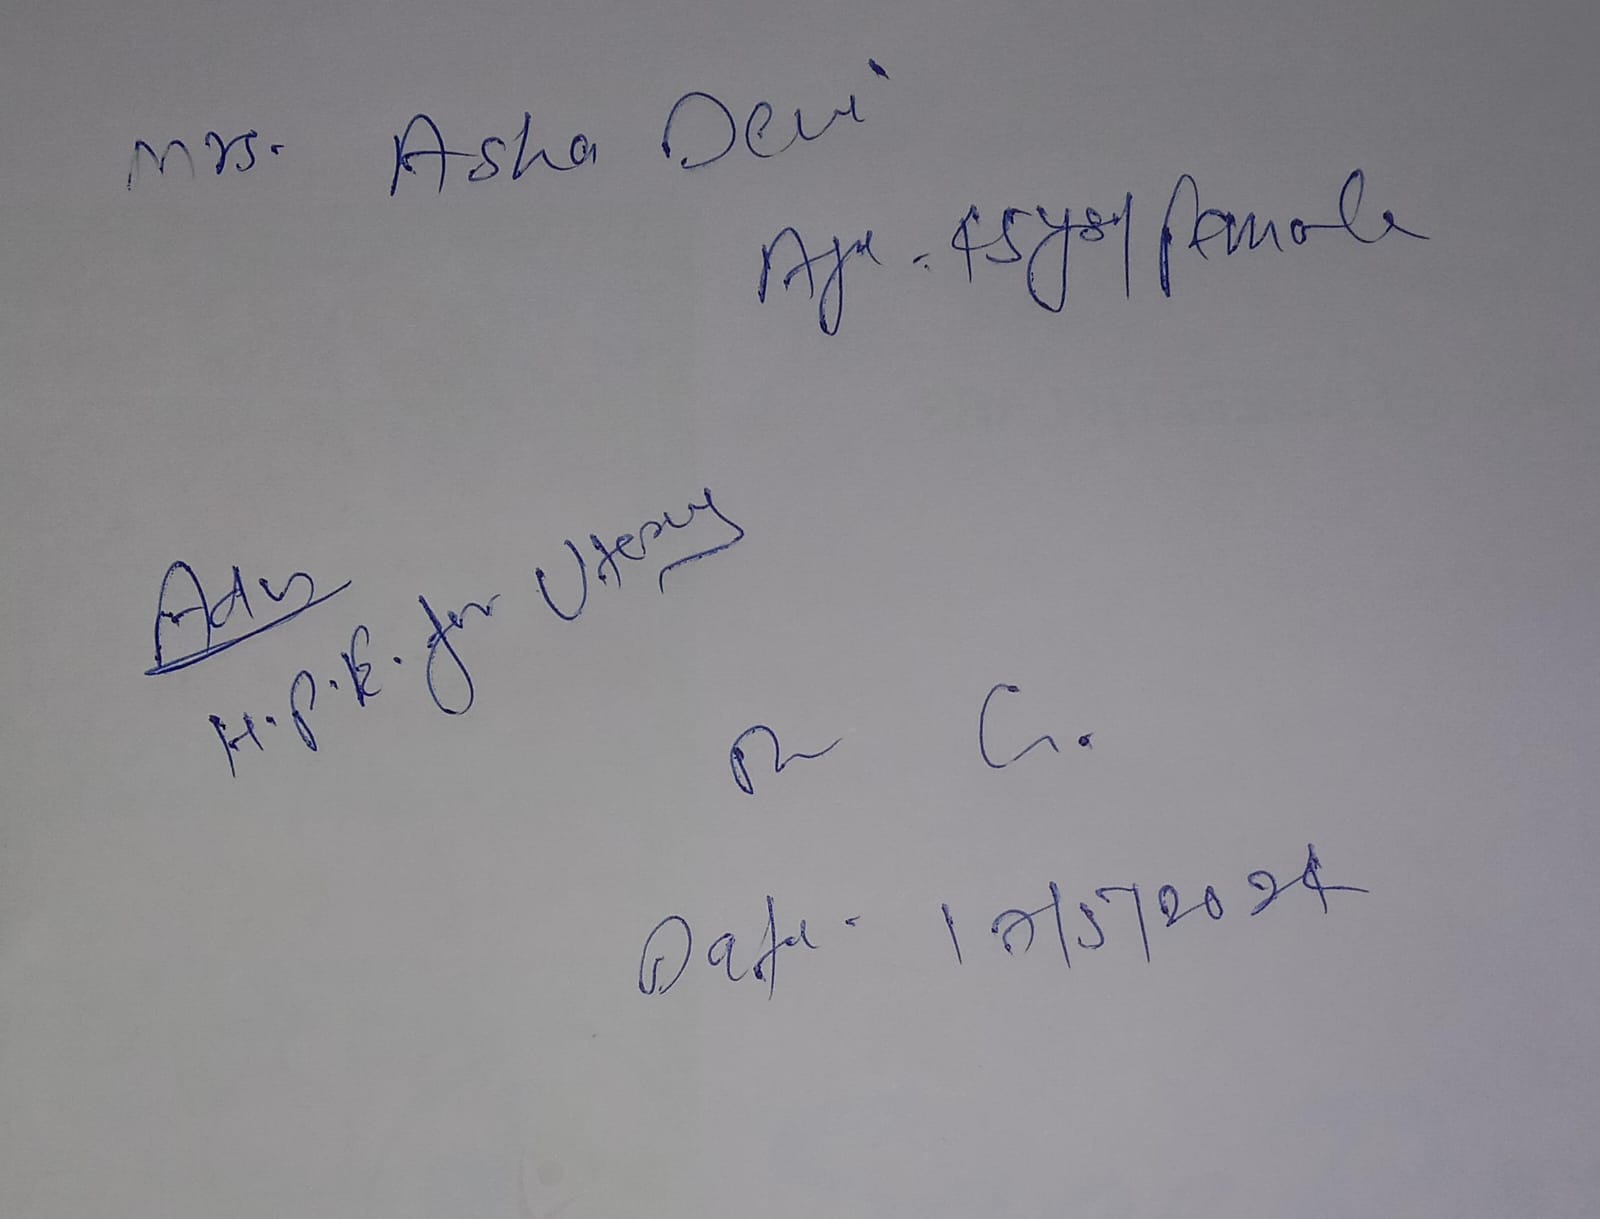 Mrs. Asha Devi
Age - 45yrs/female
Adv
H.P.E. for Uterus
Dr G.
Date - 17/5/2024